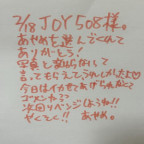 2/18 JOY508様。
あやめを選んでくれて
ありがとう!
写真と変わらなくて
言ってもらえてうれしかったよ♡
今日はイカせてあげられなくて
ゴメンネ??
次回リベンジしようね!!
やくそく!! あやめ。